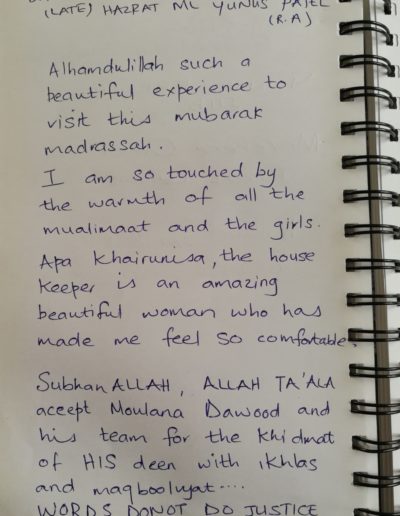 (LATE) HAZRAT ML YUNUS PATEL
(R.A)
Alhamdulillah such a
beautiful experience to
visit this mubarak
madrassah.
I am so touched by
the warmth of all the
mualimaat and the girls.
Apa Khairunisa, the house
keeper is an amazing
beautiful woman who has
made me feel so comfortable.
Subhan ALLAH, ALLAH TA'ALA
aceept Moulana Dawood and
his team for the khidmat
of HIS deen with ikhlas
and maqbooliyat....
WORDS DONOT DO JUSTICE